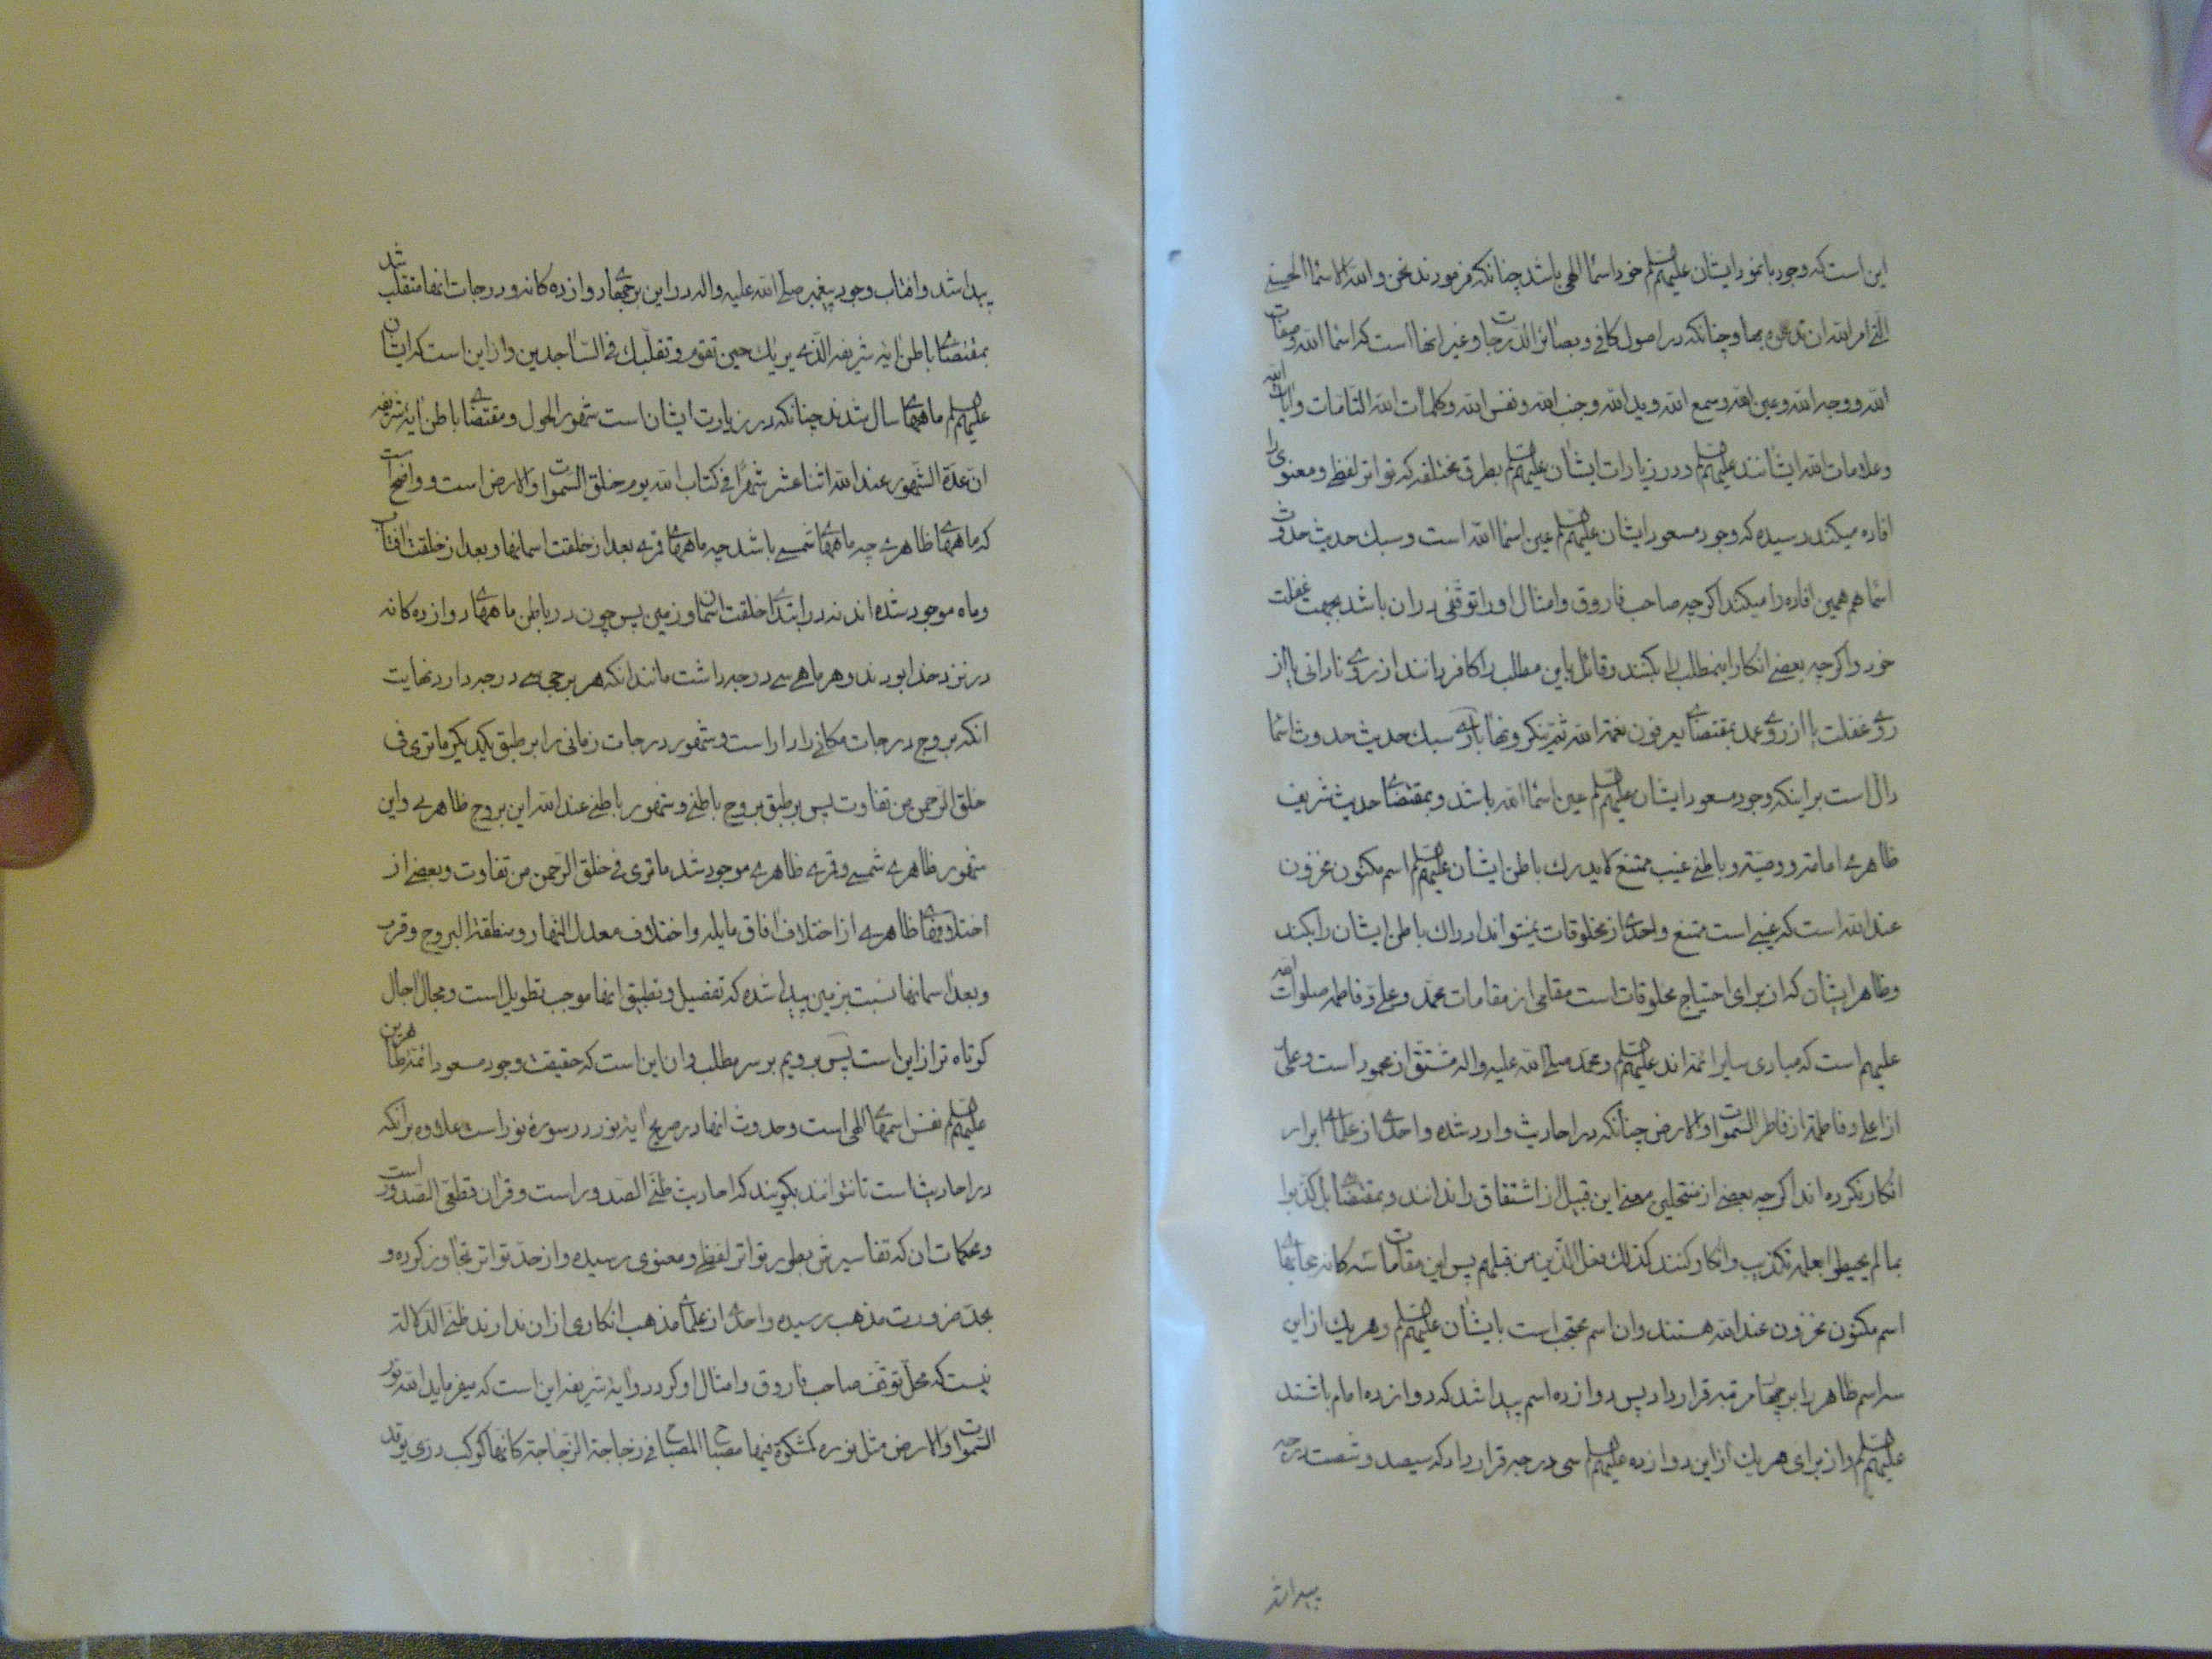 این است که وجود بانمود ایشان علیهم‌السلم خود اسماء الهی باشد چنانکه فرمودند نحن والله الاسماء الحسنی
التی امر الله ان تدعوه بها و چنانکه در اصول کافی و بصائر الدرجات و غیر انها است که اسماء الله و صفات
الله و وجه الله و عین الله و سمع الله و ید الله و جنب الله و نفس الله و کلمات الله التامات و ایات الله
و علامات الله ایشانند علیهم‌السلم و در زیارات ایشان علیهم‌السلم بطرق مختلفه که تواتر لفظی و معنوی را
افاده میکند رسیده که وجود مسعود ایشان علیهم‌السلم عین اسماء الله است و سبک حدیث حدوث
اسماء هم همین افاده را میکند اگرچه صاحب فاروق و امثال او را توقفی در ان باشد بجهت غفلت
خود و اگرچه بعضی انکار اینمطلب را بکنند و قائل باین مطلب را کافر دانند از روی نادانی یا از
روی غفلت یا از روی عمد بمقتضای یعرفون نعمة الله ثم ینکرونها باری سبک حدیث حدوث اسماء
دال است بر اینکه وجود مسعود ایشان علیهم‌السلم عین اسماء الله باشد و بمقتضای حدیث شریف
ظاهری امامة و وصیة و باطنی غیب ممتنع لایدرک باطن ایشان علیهم‌السلم اسم مکنون مخزون
عند الله است که غیبی است ممتنع و احدی از مخلوقات نمیتواند ادراک باطن ایشان را بکند
و ظاهر ایشان که از برای احتیاج مخلوقات است مقامی از مقامات محمد و علی و فاطمه صلوات الله
علیهم است که مبادی سایر ائمه اند علیهم‌السلم و محمد صلی الله علیه و اله مشتق از محمود است و علی
از اعلی و فاطمة از فاطر السموات و الارض چنانکه در احادیث وارد شده و احدی از علمای ابرار
انکار نکرده اند اگرچه بعضی از منتحلین معنی این قبیل از اشتقاق را ندانند و بمقتضای بل کذبوا
بما لم یحیطوا بعلمه تکذیب و انکار کنند کذلک فعل الذین من قبلهم پس این مقامات سه کانه حجابهای
اسم مکنون مخزون عند الله هستند و ان اسم محتجب است بایشان علیهم‌السلم و هر یک از این
سه اسم ظاهر را بر چهار مرتبه قرار داد پس دوازده اسم پیدا شد که دوازده امام باشند
علیهم‌السلم و از برای هر یک از این دوازده علیهم‌السلم سی درجه قرار داد که سیصد و شصت درجه
پیدا شد
پیدا شد و افتاب وجود پیغمبر صلی الله علیه و اله در این برجهای دوازده کانه و درجات انها منقلب شد
بمقتضای باطن ایه شریفه الذی یریک حین تقوم و تقلبک فی الساجدین و از این است که ایشان
علیهم‌السلم ماههای سال شدند چنانکه در زیارت ایشان است شهور الحول و مقتضای باطن ایه شریفه
ان عدة الشهور عند الله اثنا عشر شهرا فی کتاب الله یوم خلق السموات و الارض است و واضح است
که ماههای ظاهری چه ماههای شمسی باشد چه ماههای قمری بعد از خلقت اسمانها و بعد از خلقت افتاب
و ماه موجود شده اند نه در ابتدای خلقت اسمان و زمین پس چون در باطن ماههای دوازده کانه
در نزد خدا بودند و هر ماهی سی درجه داشت مانند انکه هر برجی سی درجه دارد نهایت
انکه بروج درجات مکانی را دارا است و شهور درجات زمانی را بر طبق یکدیکر ماتری فی
خلق الرحمن من تفاوت پس بر طبق بروج باطنی و شهور باطنی عند الله این بروج ظاهری و این
شهور ظاهری شمسی و قمری ظاهری موجود شد ماتری فی خلق الرحمن من تفاوت و بعضی از
اختلافهای ظاهری از اختلاف افاق مایله و اختلاف معدل النهار و منطقة البروج و قرب
و بعد اسمانها نسبت بزمین پیدا شده که تفصیل و تطبیق انها موجب تطویل است و مجال اجال
کوتاه تر از این است پس برویم بر سر مطلب و ان این است که حقیقت وجود مسعود ائمه طاهرین
علیهم‌السلم نفس اسمهای الهی است و حدوث انها در صریح ایه نور در سوره نور است علاوه بر انکه
در احادیث است تا نتوانند بکویند که احادیث ظنی الصدور است و قران قطعی الصدور است
و محکمات ان که تفاسیرش بطور تواتر لفظی و معنوی رسیده و از حد تواتر تجاوز کرده و
بحد ضرورت مذهب رسیده و احدی از علمای مذهب انکاری از ان ندارند ظنی الدلالة
نیست که محل توقف صاحب فاروق و امثال او کردد و ایه شریفه این است که میفرماید الله نور
السموات و الارض مثل نوره کمشکوة فیها مصباح المصباح فی زجاجة الزجاجة کانها کوکب دری یوقد